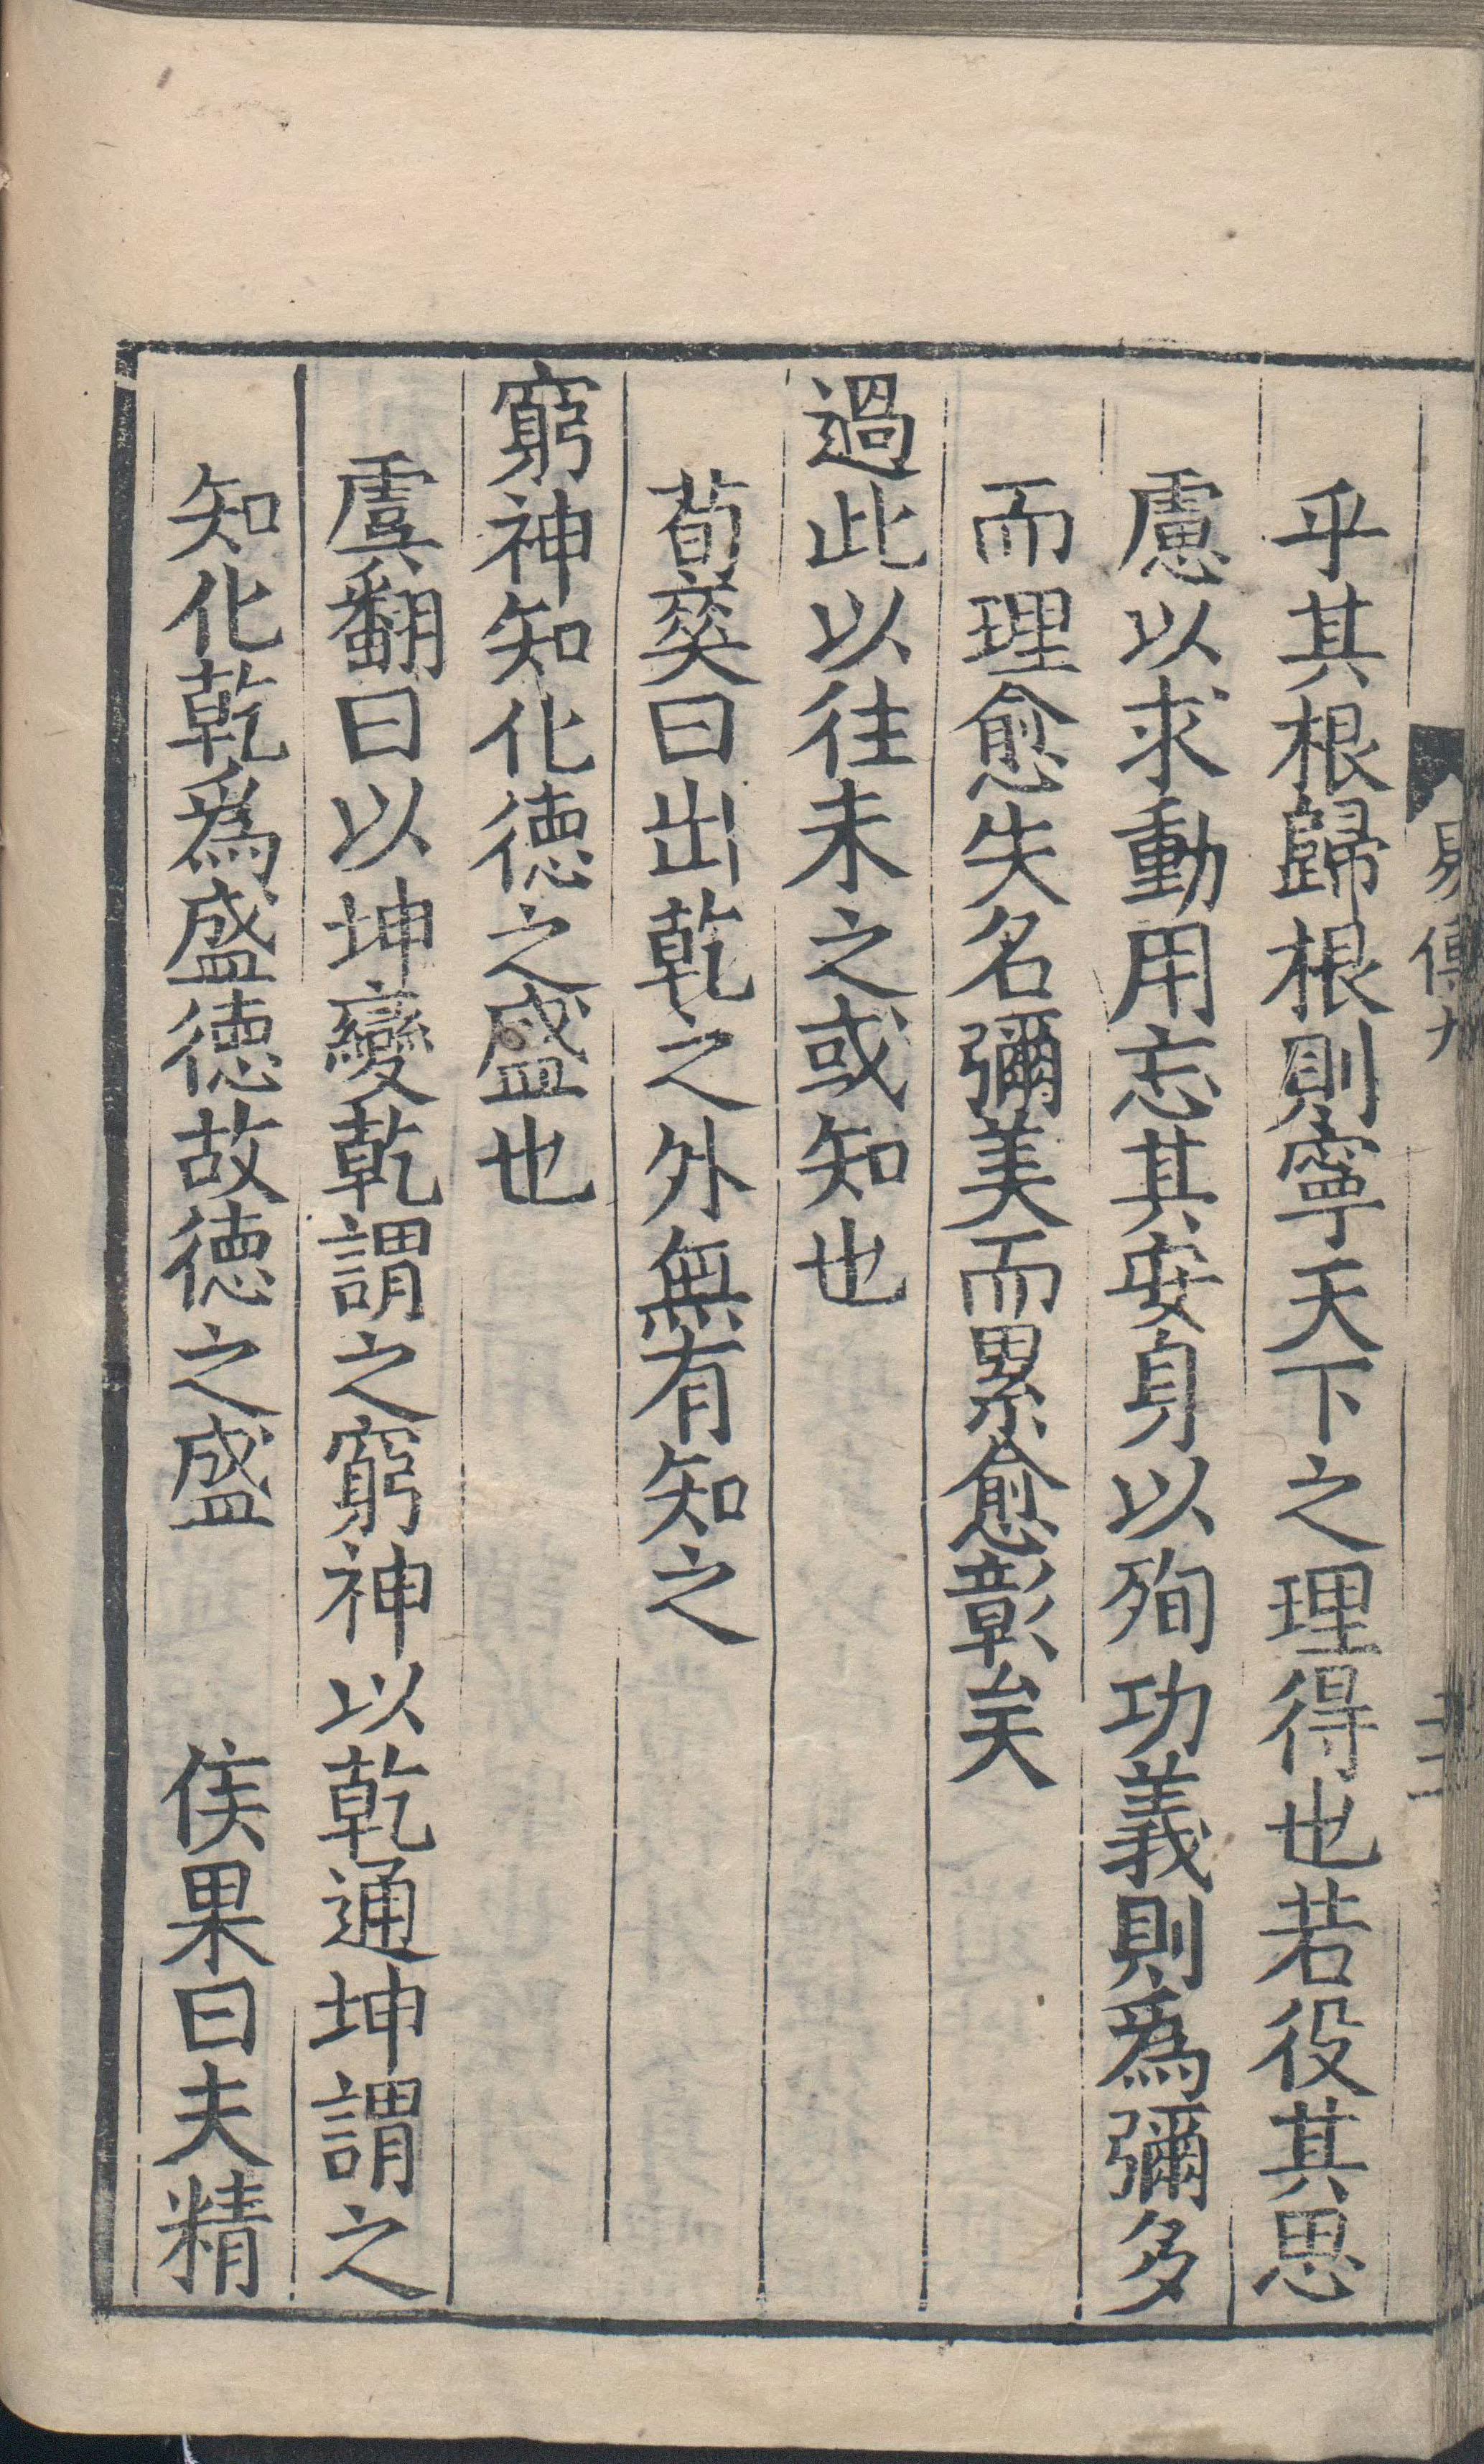 易傳九
十二
乎其根歸根則寧天下之理得也若役其思
慮以求動用忘其安身以殉功義則為彌多
而理愈失名彌美而累愈彰矣
過此以往未之或知也
荀爽曰出乾之外無有知之
窮神知化德之盛也
虞翻曰以坤變乾謂之窮神以乾通坤謂之
知化乾爲盛德故德之盛　侯果曰夫精